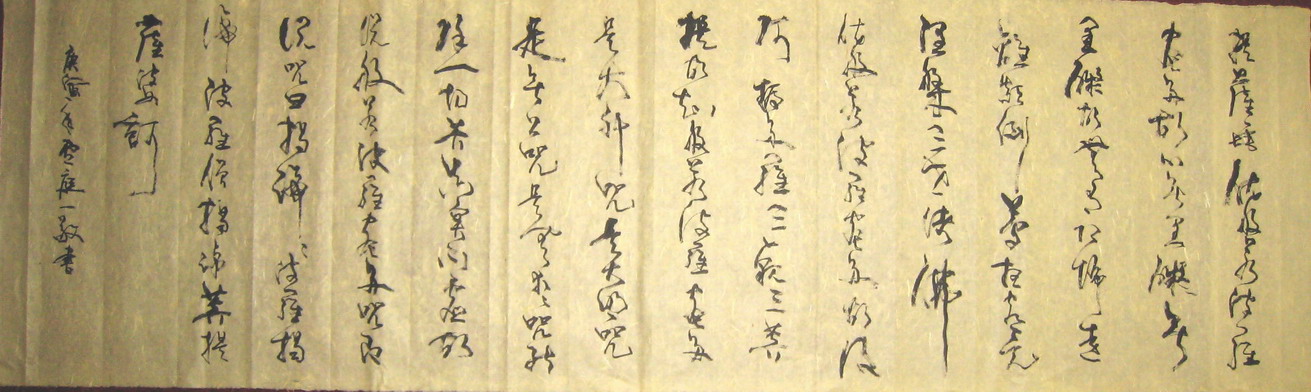 提薩埵依般若波羅
蜜多故心無罣礙無
罣礙故無有恐怖遠
離顛倒夢想究竟
涅槃三世諸佛
依般若波羅蜜多故得
阿耨多羅三藐三菩
提故知般若波羅蜜多
是大神咒是大明咒
是無上咒是無等〻咒能
除一切苦真實不虛故
說般若波羅蜜多咒即
說咒曰揭諦〻波羅揭
諦波羅僧揭諦菩提
薩婆訶
庚寅年雲庭一敬書